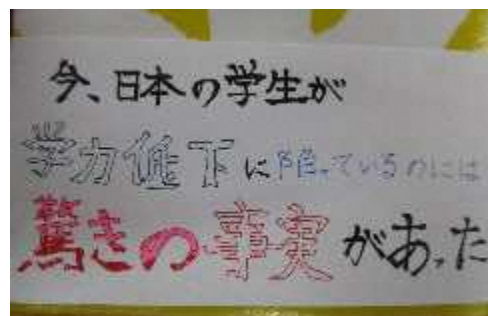 今、日本の学生が
学力低下に陥っているのには
驚きの事実があった